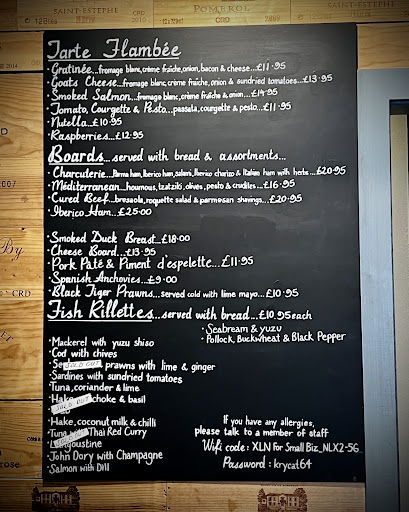 SAINT-ESTEPHE
POMEROL
CRD
Tarte Flambée
· Gratinée...fromage blanc, crème fraîche, onion, bacon & cheese...£11.95
· Goats Cheese...fromage blanc, crème fraîche, onion & sundried tomatoes...£13.95
· Smoked Salmon...fromage blanc, crème fraîche & onion...£14.95
· Tomato, Courgette & Pesto...passata, courgette & pesto...£11.95
· Nutella...£10.95
· Raspberries...£12.95
Boards...served with bread & assortments...
· Charcuterie...Parma ham, Iberico ham, salami, Iberico chorizo & Italian ham with herbs...£20.95
· Méditerranean...houmous, tzatziki, olives, pesto & crudites...£16.95
· Cured Beef...bresaola, roquette salad & parmesan shavings...£20.95
· Iberico Ham...£25.00
· Smoked Duck Breast...£18.00
· Cheese Board...£13.95
· Pork Paté & Piment d'espelette...£11.95
· Spanish Anchovies...£9.00
· Black Tiger Prawns...served cold with lime mayo...£10.95
Fish Rillettes...served with bread...£10.95 each
· Seabream & yuzu
· Pollock, Buckwheat & Black Pepper
· Mackerel with yuzu shiso
· Cod with chives
SOLD OUT prawns with lime & ginger
· Sardines with sundried tomatoes
· Tuna, coriander & lime
· Hake, choke & basil
SOLD OUT
· Hake, coconut milk & chilli
· Tuna Thai Red Curry
· Langoustine
· John Dory with Champagne
· Salmon with Dill
If you have any allergies,
please talk to a member of staff
Wifi code: XLN For Small Biz_NLX2-5G
Password: krycat64